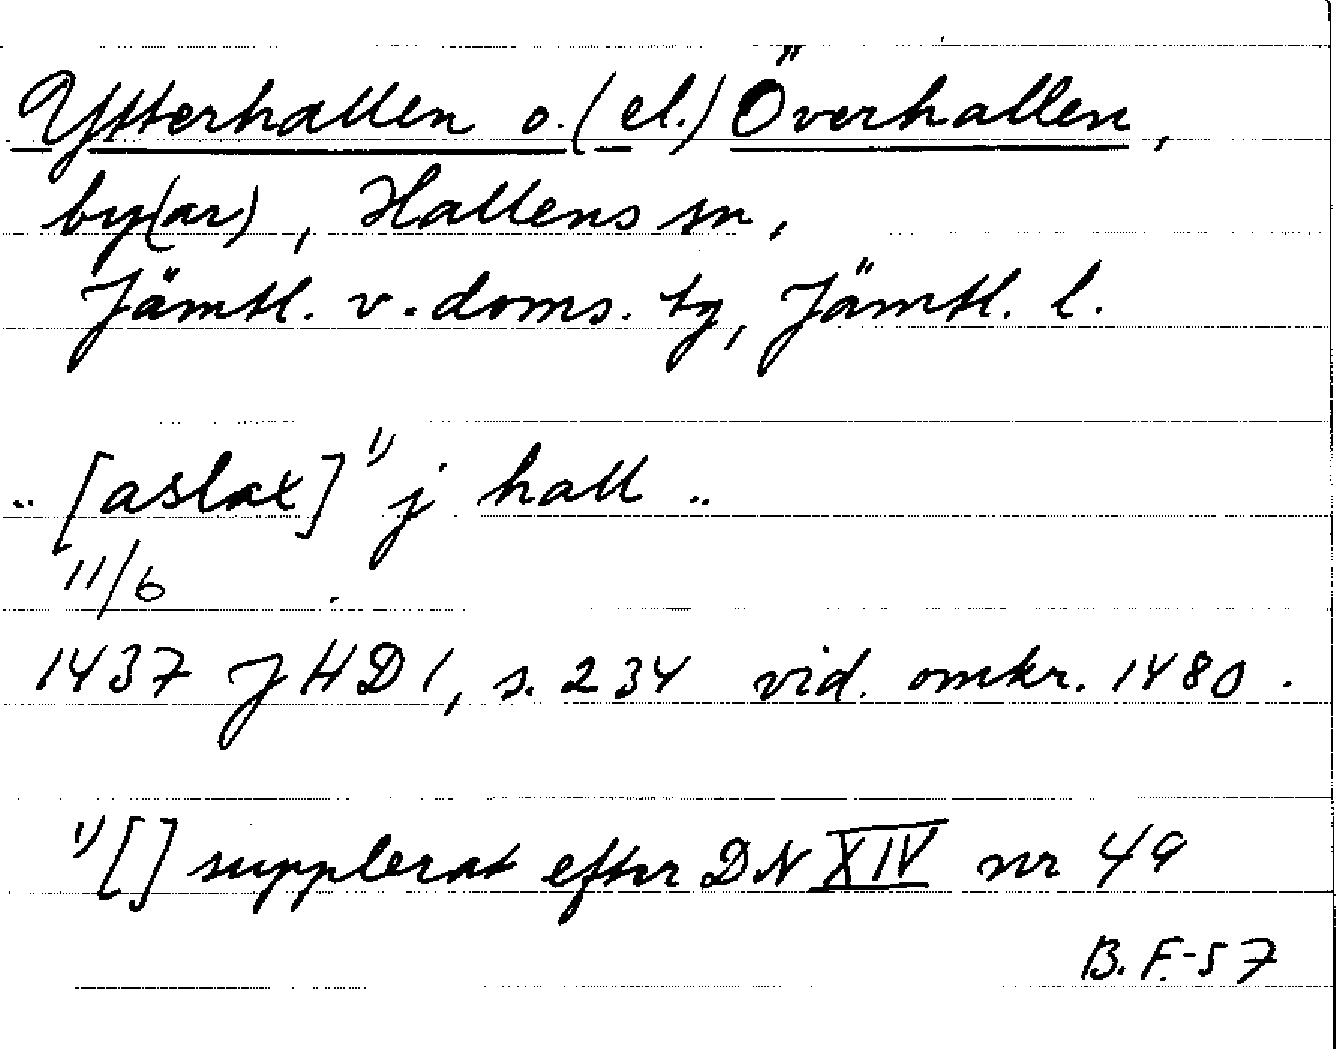 Ytterhallen o. (el.) Överhallen,
by(ar), Hallens sn,
Jämtl. v. doms. tg, Jämtl. l.
.. [aslax] 1) j hall ..
11/6
1437 JHD 1, s. 234 vid. omkr. 1480.
1) [] supplerat efter DN XIV nr 49
B. F.-57